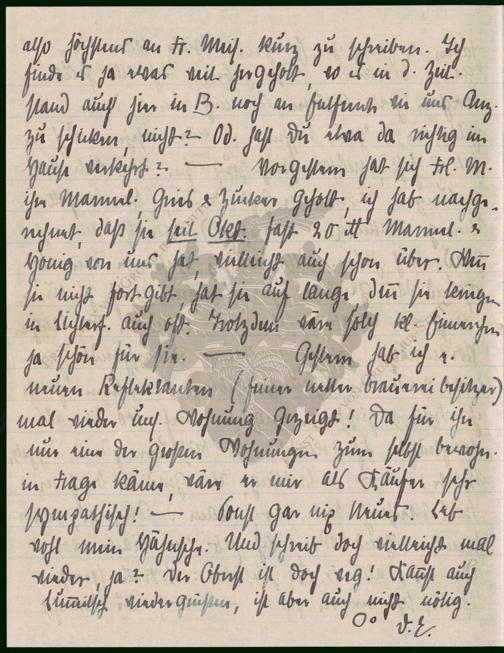 also höchstens an Fr. Meis. kurz zu schreiben. Ich
finde es ja etwas weit hergeholt, wo es in d. Zeit.
stand auch hier in B. noch an Entfernte wie uns Anz.
zu schicken, nicht? Od. hast Du etwa da richtig im
Hause verkehrt? — Vorgestern hat sich Frl. M.
ihre Marmel. Gries & Zucker geholt, ich hab nachge-
rechnet, daß sie seit Okt. fast 20 ℔ Marmel. &
Honig von uns hat, vielleicht auch schon über. Wenn
sie nicht fort gibt, hat sie auf lange, denn sie kriegen
in auch oft. Trotzdem wäre solch kl.
ja schön für sie. — Gestern hab ich e.
neuen Reflektanten (feiner netter Brauereibesitzer)
mal wieder uns. Wohnung gezeigt! Da für ihn
nur eine der großen Wohnungen zum selbst bewohn.
in Frage käme, wäre er mir als Käufer sehr
sympathisch! — Sonst gar nix Neues. Leb
wohl mein Hähnsche. Und schreib doch vielleicht mal
wieder, ja? Der Oberst ist doch weg! Kannst auch
wieder grüßen, ist aber auch nicht nötig.
D. E.